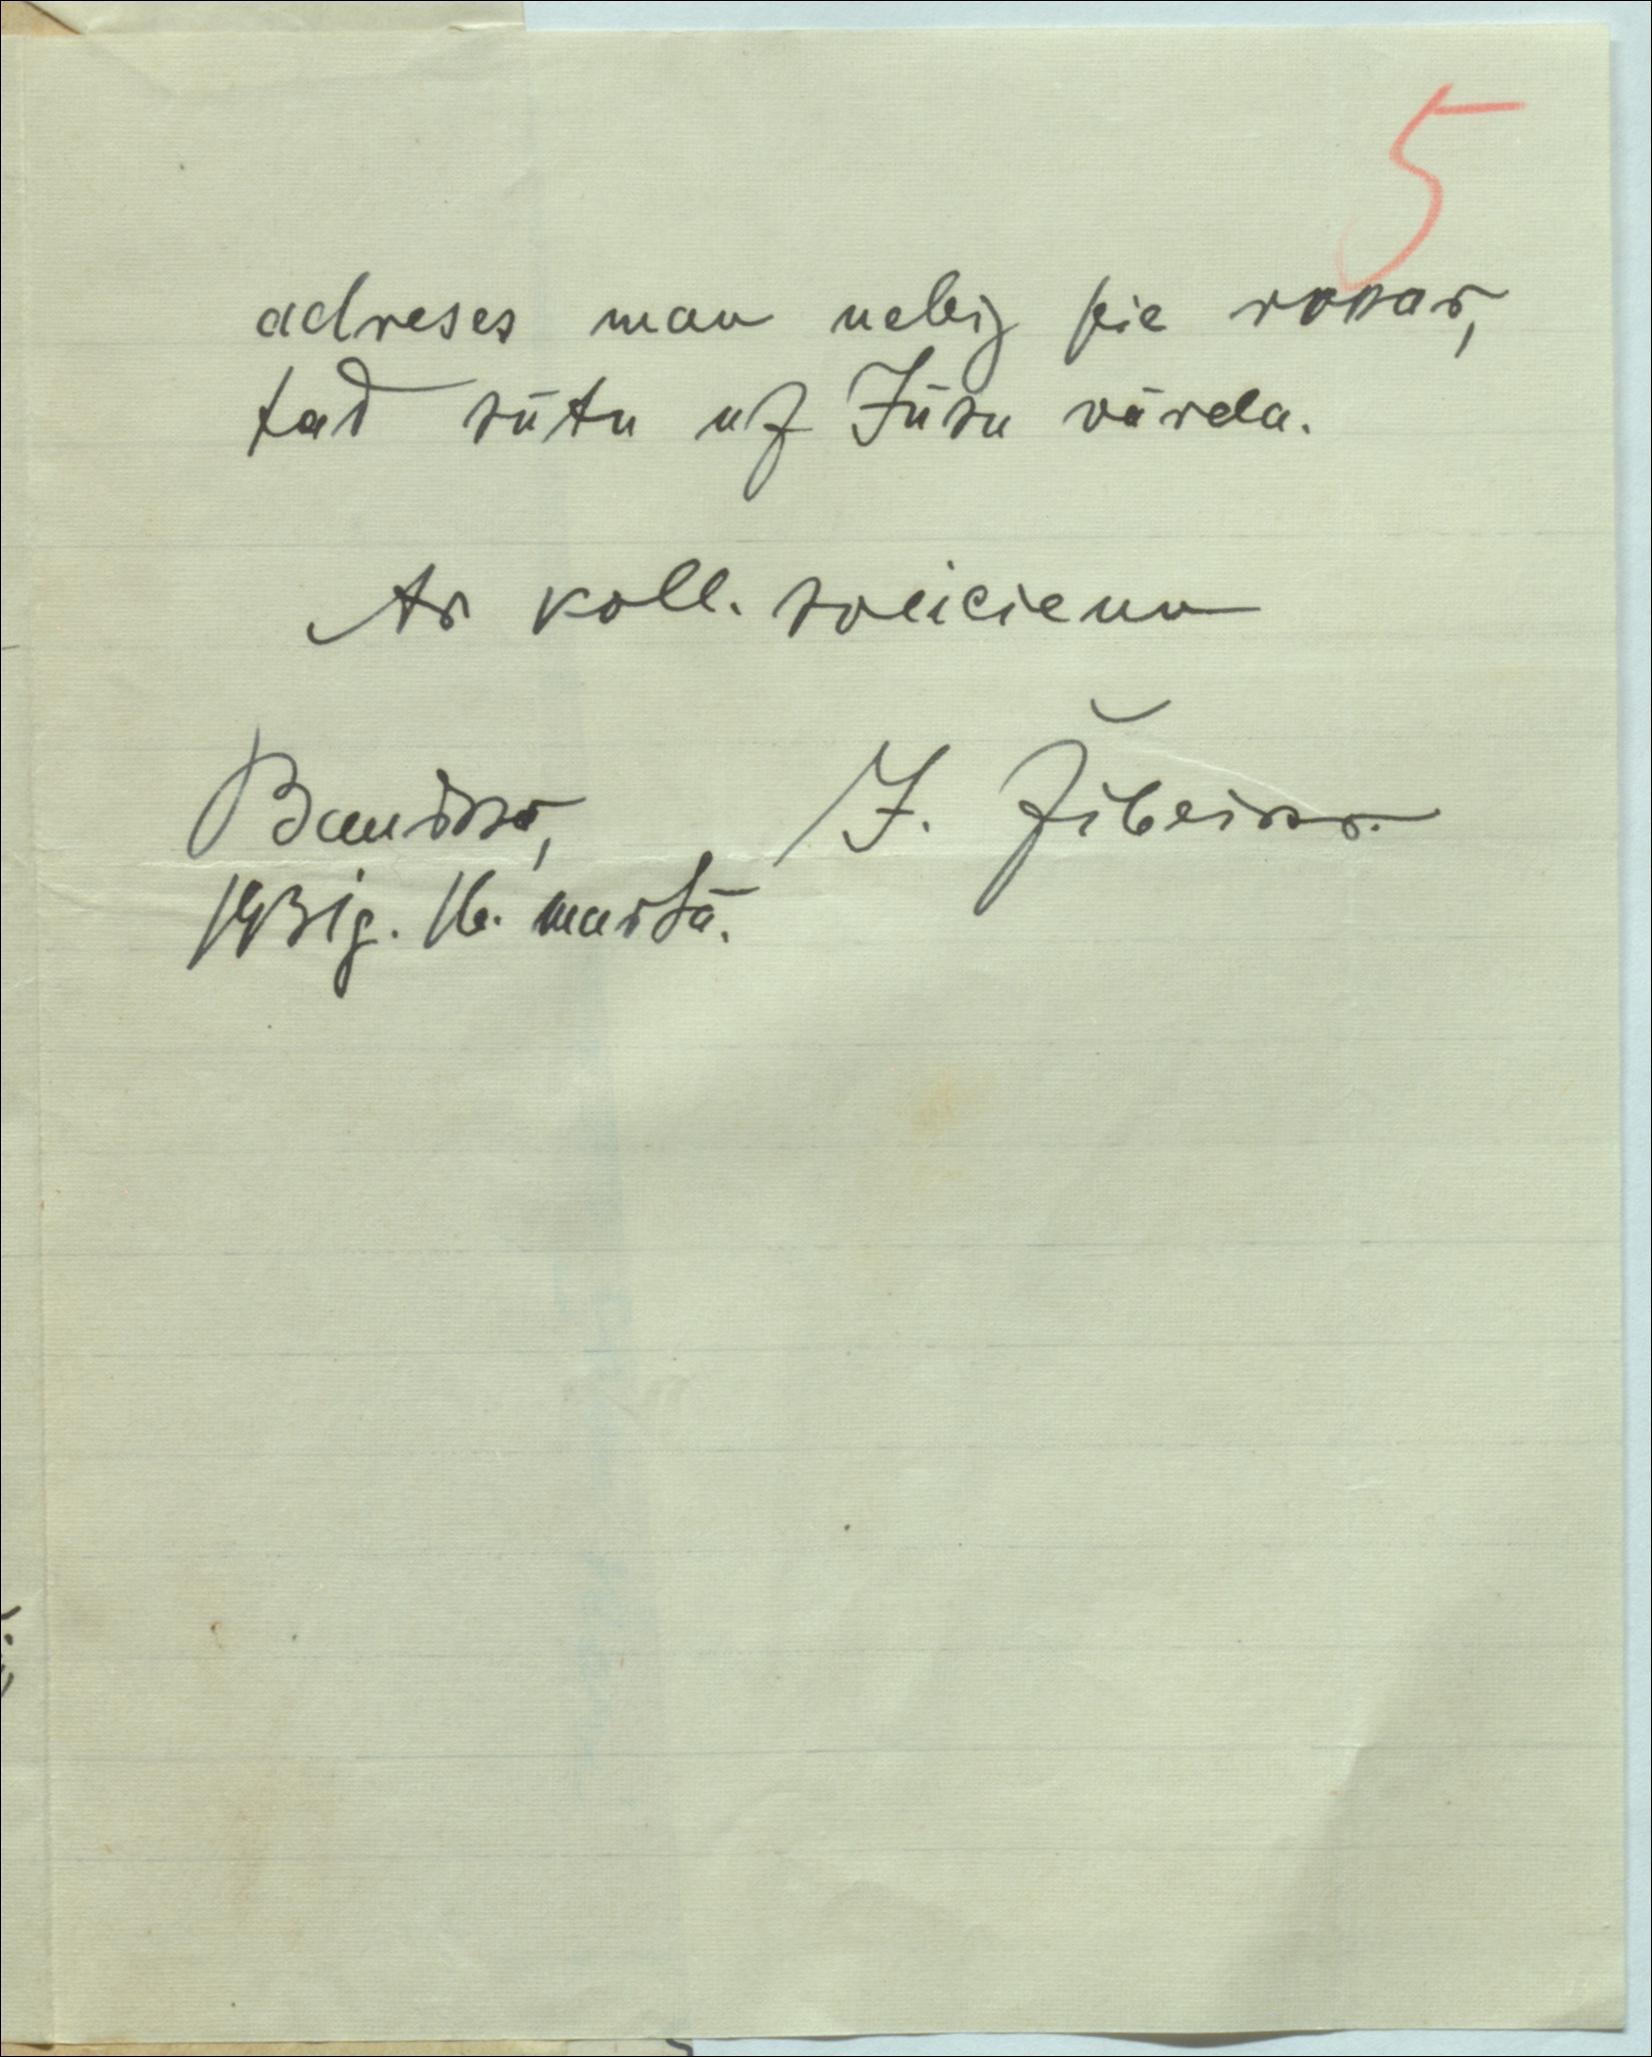 5
adreses man nebij pie rokas,
tad sūtu uz Jūsu vārda.
Ar koll. sveicienu
Bauskā, J. Žibeiks.
1931g. 16. martā.